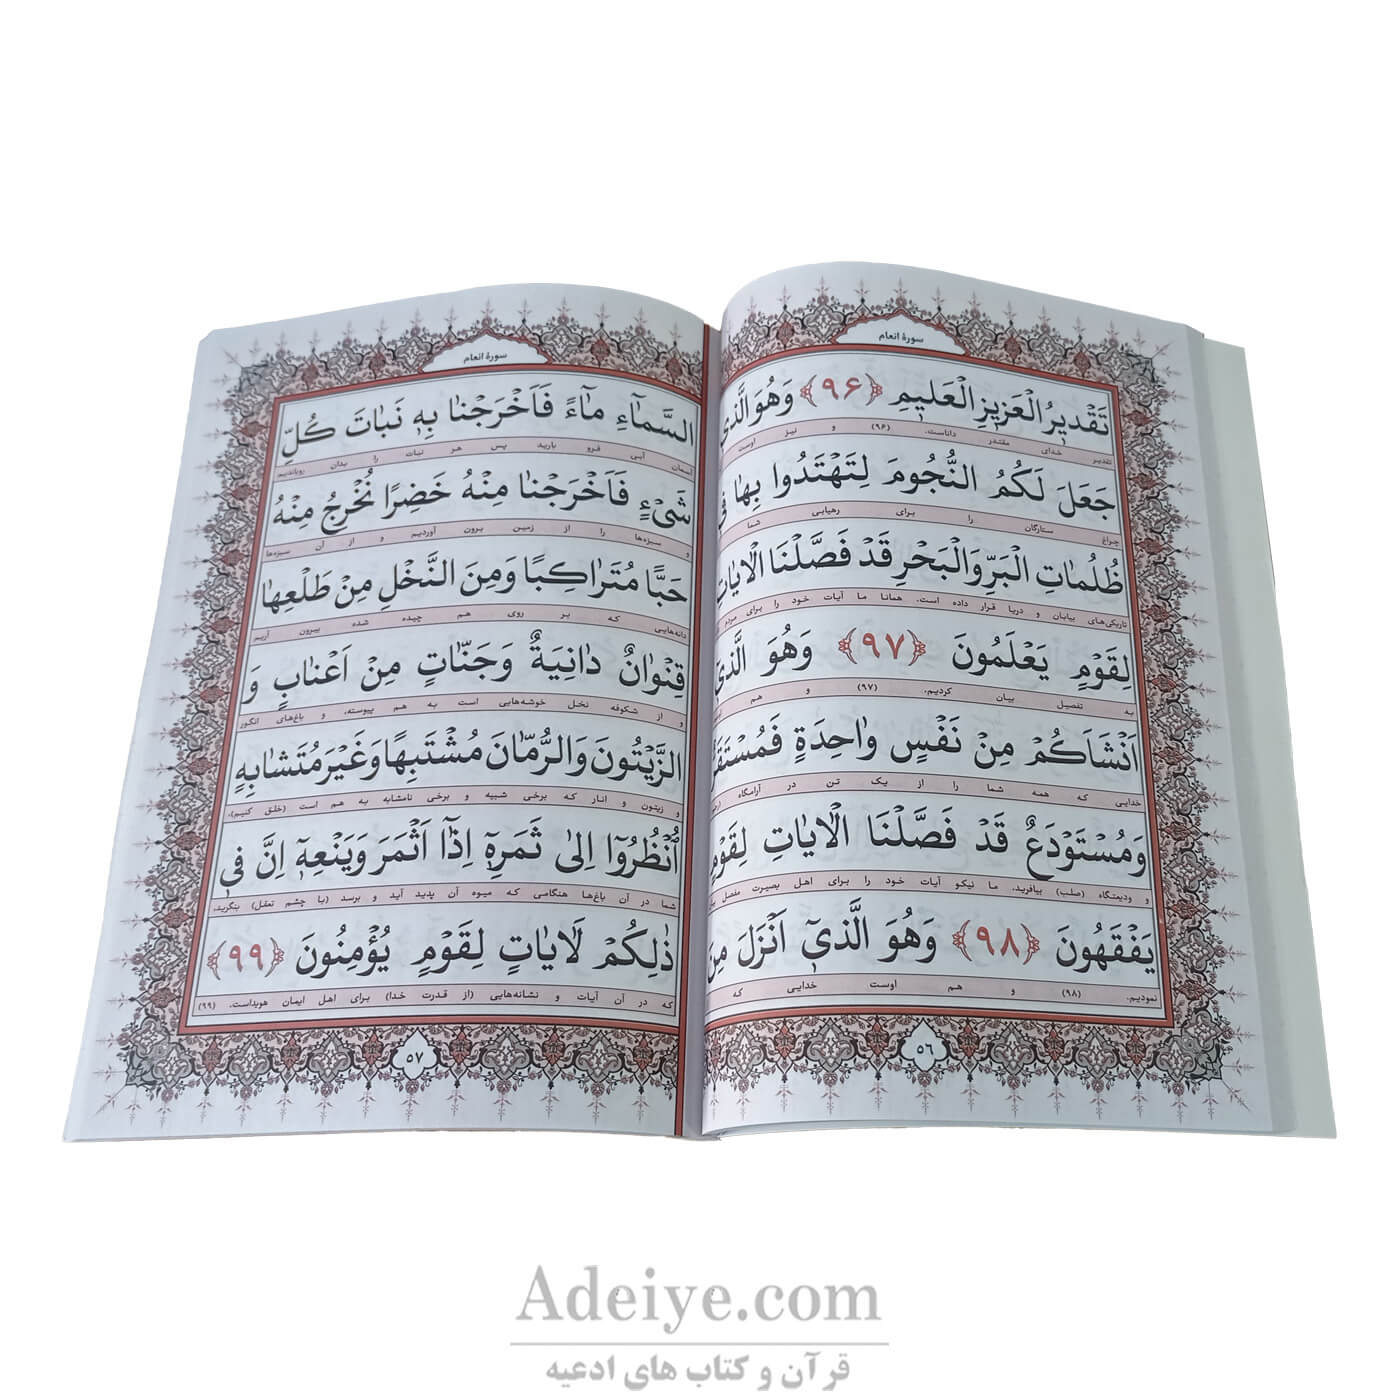 سورهٔ انعام
تَقْدیرُ الْعَزیزِ الْعَلیمِ ﴿۹۶﴾ وَهُوَ الَّذی
تقدیر خدای مقتدر داناست. (۹۶) و نیز اوست
جَعَلَ لَکُمُ النُّجُومَ لِتَهْتَدُوا بِها فی
چراغ ستارگان را برای رهیابی شما
ظُلُماتِ الْبَرِّ وَالْبَحْرِ قَدْ فَصَّلْنَا الْایاتِ
تاریکی‌های بیابان و دریا قرار داده است. همانا ما آیات خود را برای مردم
لِقَوْمٍ یَعْلَمُونَ ﴿۹۷﴾ وَهُوَ الَّذی
به تفصیل بیان کردیم. (۹۷) و هم
اَنْشَاَکُمْ مِنْ نَفْسٍ واحِدَةٍ فَمُسْتَقَرٌّ
خدایی که همه شما را از یک تن در آرامگاه
وَمُسْتَوْدَعٌ قَدْ فَصَّلْنَا الْایاتِ لِقَوْمٍ
و ودیعتگاه (صلب) بیافرید. ما نیکو آیات خود را برای اهل بصیرت مفصل
یَفْقَهُونَ ﴿۹۸﴾ وَهُوَ الَّذیٓ اَنْزَلَ مِنَ
نمودیم. (۹۸) و هم اوست خدایی که
۵۶
سورهٔ انعام
السَّمآءِ مآءً فَاَخْرَجْنا بِهٖ نَباتَ کُلِّ
آسمان آبی فرو بارید پس هر نبات را بدان رویاندیم
شَیْءٍ فَاَخْرَجْنا مِنْهُ خَضِرًا نُخْرِجُ مِنْهُ
و سبزه‌ها را از زمین برون آوردیم و از آن سبزه‌ها
حَبًّا مُتَراکِبًا وَمِنَ النَّخْلِ مِنْ طَلْعِها
دانه‌هایی که بر روی هم چیده شده بیرون آریم
قِنْوانٌ دانِیَةٌ وَجَنّاتٍ مِنْ اَعْنابٍ وَ
و از شکوفه نخل خوشه‌هایی است به هم پیوسته، و باغ‌های انگور
الزَّیْتُونَ وَالرُّمّانَ مُشْتَبِهًا وَغَیْرَ مُتَشابِهٍ
و زیتون و انار که برخی شبیه و برخی نامشابه به هم است (خلق کنیم).
اُنْظُرُوٓا اِلیٰ ثَمَرِهٖٓ اِذٰٓا اَثْمَرَ وَیَنْعِهٖٓ اِنَّ فی
شما در آن باغ‌ها هنگامی که میوه آن پدید آید و برسد (با چشم تعقل) بنگرید،
ذٰلِکُمْ لَایاتٍ لِقَوْمٍ یُؤْمِنُونَ ﴿۹۹﴾
که در آن آیات و نشانه‌هایی (از قدرت خدا) برای اهل ایمان هویداست. (۹۹)
۵۷
Adeiye.com
قرآن و کتاب های ادعیه